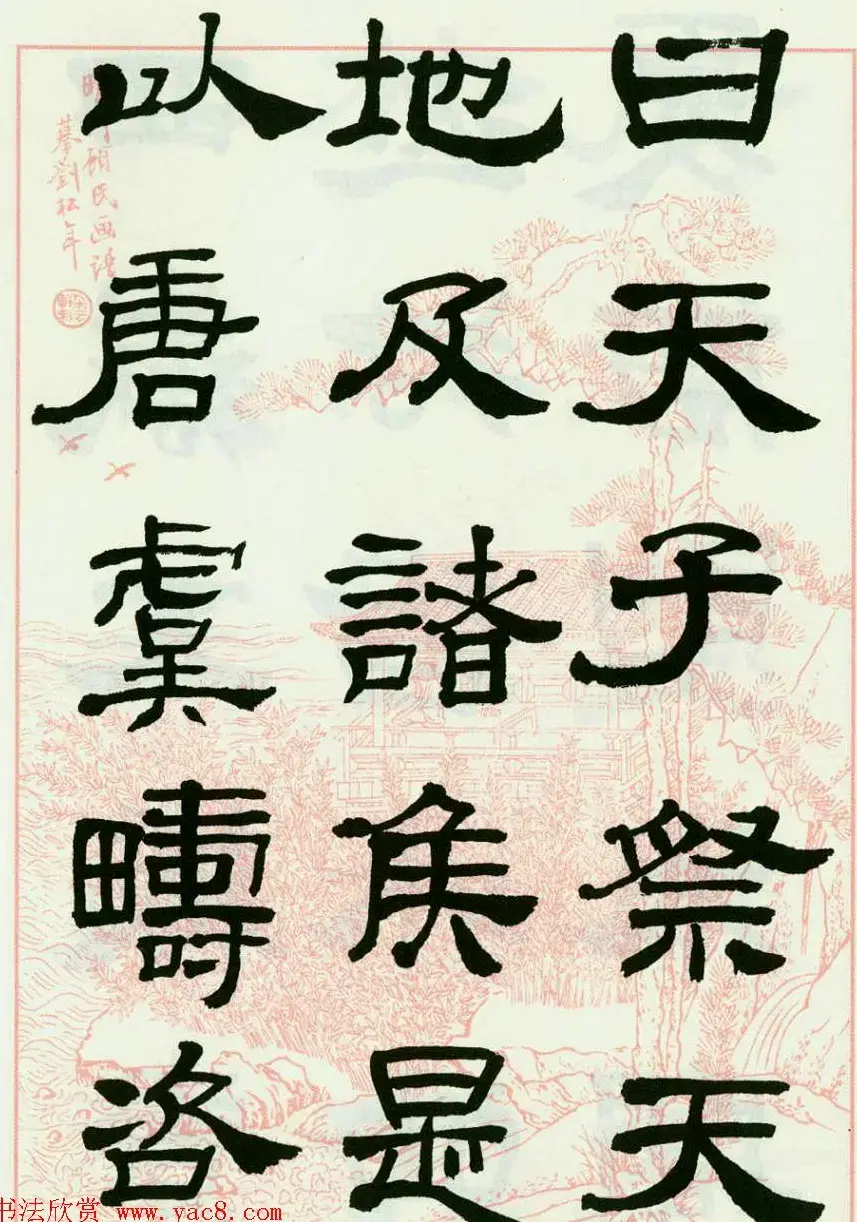 曰天子祭天
地及諸侯是
以唐虞疇咨
顧氏画譜
摹劉松年
书法欣赏 www.yac8.com